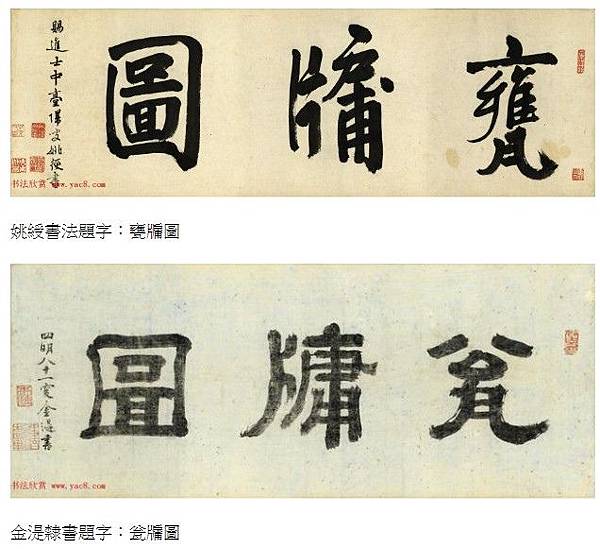 甕牖圖
賜進士中臺 姚綬書
书法欣赏 www.yac8.com
姚綬書法題字：甕牖圖
瓮牖圖
四明八十一叟金湜書
书法欣赏 www.yac8.com
金湜隸書題字：瓮牖圖